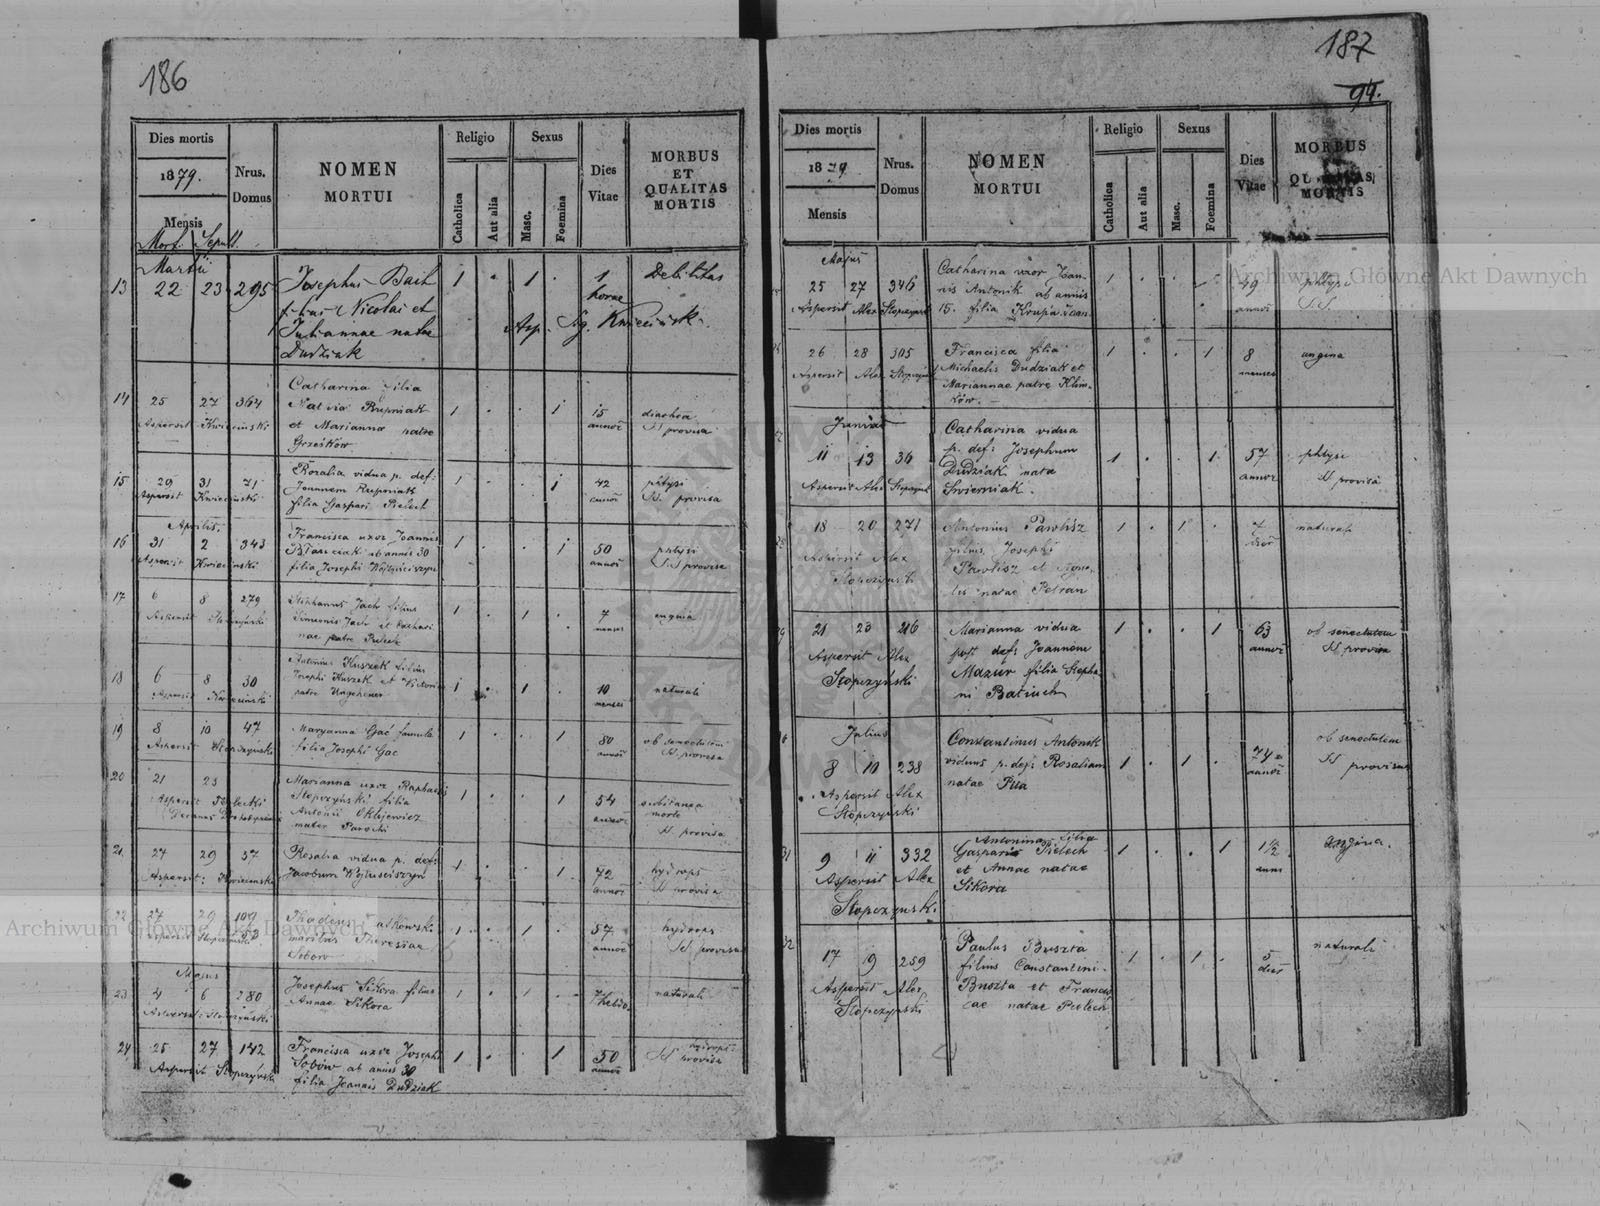 186
Dies mortis
1879.
Mensis
Mort. Sepult.
Nrus. Domus
NOMEN
MORTUI
Religio
Catholica
Aut alia
Sexus
Masc.
Foemina
Dies
Vitae
MORBUS
ET
QUALITAS
MORTIS
Martii
13 22 23 295 Josephus Bach 1 . 1 . 1 Debilitas
filius Nicolai et horae
Juliannae natae Asp. Ig. Kwieciński.
Dudziak
Catharina filia
14 25 27 364 Rupniak 1 . . 1 15 diarhea
Aspersit Kwieciński et Marianna natae annor SS provisa
Grześków
15 29 31 71 Rozalia vidua p. def: 1 . . 1 42 phtysi
Aspersit Kwieciński Joannem Rupniak annor SS. provisa
filia Gaspari Pielech
Aprilis
16 31 2 343 Francisca uxor Joannis 1 . . 1 50 phtysi
Aspersit Kwieciński ab annis 30 annor SS provisa
filia Josephi
17 6 8 279 Stephanus Jach filius 1 . 1 . 7 angina
Aspersit Simeonis Jach et Cathari menses
nae natae Pielech
18 6 8 30 Antonius Kuszek filius 1 . 1 . 10 naturali
Aspersit Kwieciński Josephi Kuszek et Victoriae menses
natae Ungeheuer
19 8 10 47 Maryanna Gać famula 1 . . 1 80 ob senectutem
Aspersit Stopczyński filia Josephi Gac annor SS provisa
20 21 23 Marianna uxor Raphaelis 1 . . 1 54 subitanea
Aspersit Stopczyński filia annor morte
Decanus Antonii Oklejewicz SS provisa
mater Parochi
21 27 29 57 Rosalia vidua p. def: 1 . . 1 72 hydrops
Aspersit: Kwieciński Jacobum Wojtuściszyn annor SS provisa
22 27 29 109 Thadeus 1 . 1 . 57 hydrops
Aspersit Stopczyński 53 maritus Theresiae annor SS provisus
Sobow
Majus
23 4 6 280 Josephus Sikora filius 1 . 1 . 7 hebdo naturali
Aspersit: Stopczyński Annae Sikora
24 25 27 142 Francisca uxor Josephi 1 . . 1 50 hydrops
Aspersit Stopczyński Sobów ab annis 30 annor SS provisa
filia Joannis Dudziak
187
94.
Dies mortis
1879
Mensis
Nrus.
Domus
NOMEN
MORTUI
Religio
Catholica
Aut alia
Sexus
Masc.
Foemina
Dies
Vitae
MORBUS
QUALITAS
MORTIS
Majus
25 27 346 Catharina uxor Joan- 1 . . 49 phtysi
Aspersit Alex Stopczyński nis Antonik ab annis annor SS.
15. filia Krupa Joan.
26 28 305 Francisca filia 1 . . 1 8 angina
Aspersit Alex Stopczyński Michaelis Dudziak et menses
Mariannae natae Klim-
ków. —
Junius
11 13 36 Catharina vidua 1 . . 1 57 phtysi
Aspersit Alex Stopczyński p. def: Josephum annor SS provisa
Dudziak nata
Swierniak.
18 20 271 Antonius Pawlisz 1 . 1 . 7 naturali
Aspersit Alex filius Josephi dier
Stopczyński Pawlisz et Agne-
tis natae Petran
29 21 23 216 Marianna vidua 1 . . 1 63 ob senectutem
Aspersit Alex post def: Joannem annor SS provisa
Stopczyński Mazur filia Stepha
ni Batiuch
Julius
8 10 238 Constantinus Antonik 1 . 1 . 74 ob senectutem
Aspersit Alex viduus p. def: Rosaliam annor SS provisus
Stopczyński natae Piła
31 9 11 332 Antonina filia 1 . . 1 1 1/2 angina.
Aspersit Alex Gasparis Pielech anni
Stopczyński et Annae natae
Sikora
32 17 19 259 Paulus Buszta 1 . 1 . 5 naturali
Aspersit Alex filius Constantini dier
Stopczyński Buszta et Francis
cae natae Pielech
Archiwum Główne Akt Dawnych
Archiwum Główne Akt Dawnych